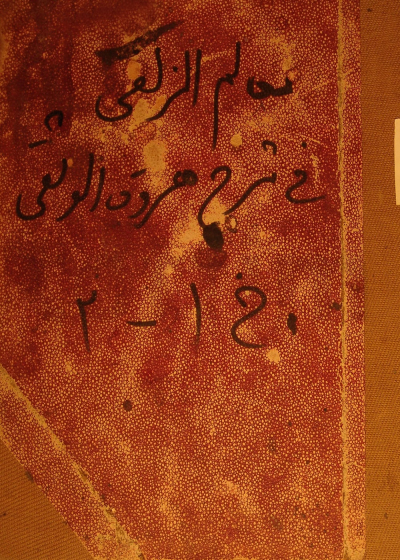 معالم الزلفى
في شرح عروة الوثقى
ج ١ - ٢